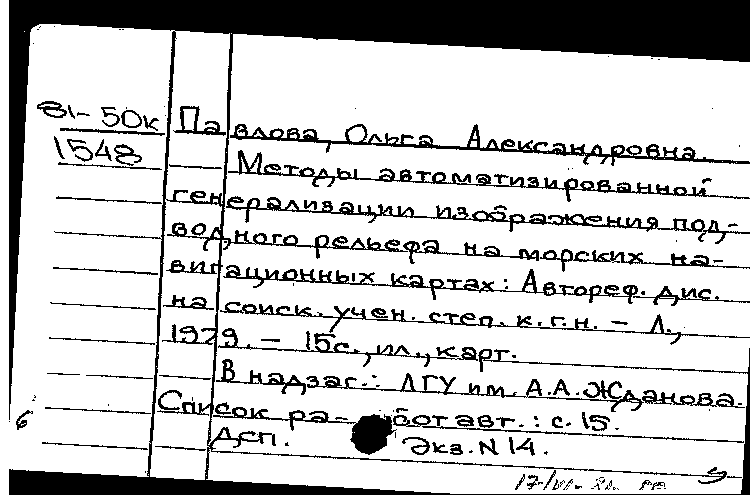 81-50к
1548
Павлова, Ольга Александровна.
Методы автоматизированной
генерализации изображения под-
водного рельефа на морских на-
вигационных картах: Автореф. дис.
на соиск. учен. степ. к.г.н. – Л.,
1979. – 15с., ил., карт.
В надзаг.: ЛГУ им. А.А. Жданова.
Список работ авт.: с. 15.
Дсп. Экз. N 14.
б